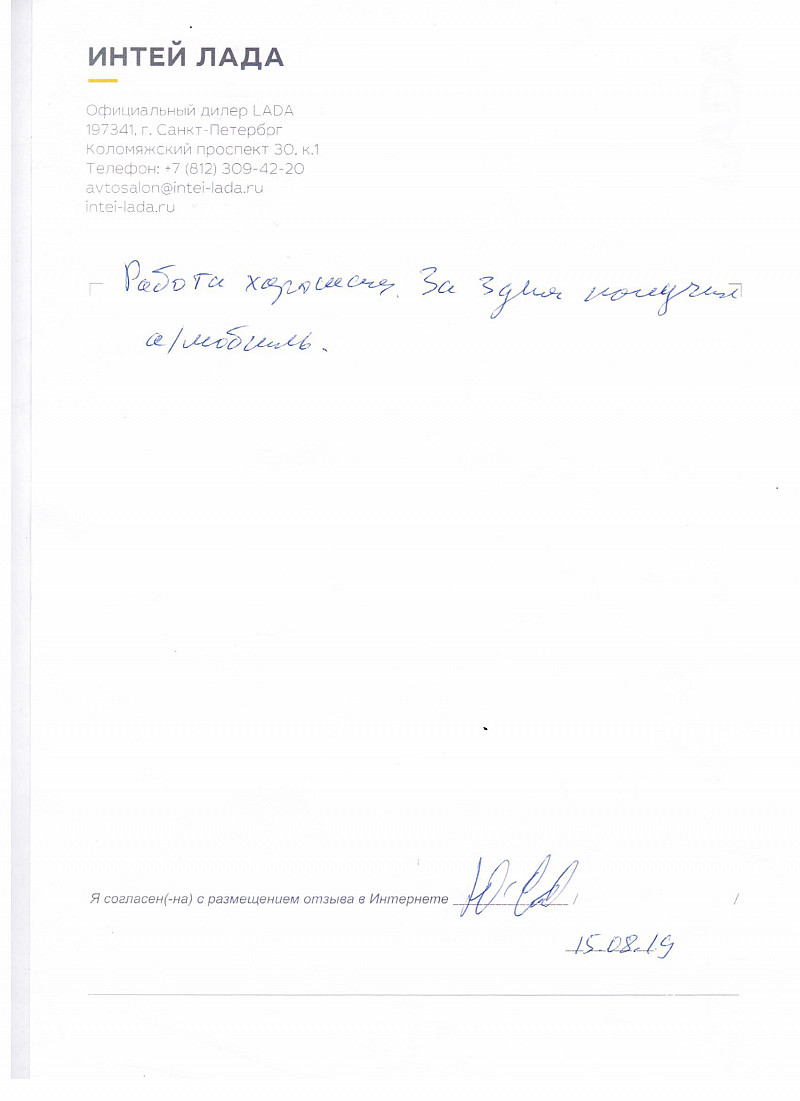 ИНТЕЙ ЛАДА
Официальный дилер LADA
197341, г. Санкт-Петербрг
Коломяжский проспект 30, к.1
Телефон: +7 (812) 309-42-20
avtosalon@intei-lada.ru
intei-lada.ru
Работа хорошая. За 3 дня получил
а/мобиль.
Я согласен(-на) с размещением отзыва в Интернете / /
15.08.19